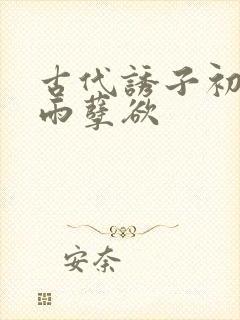 古代誘子初
雨孽欲
安奈